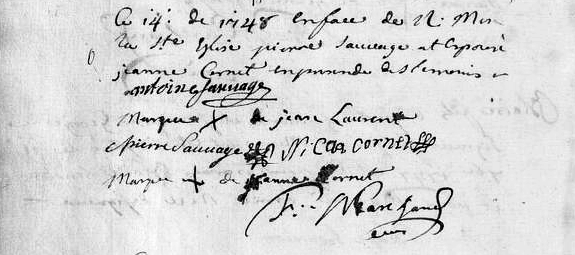 Ce 14: de 1748 en face de N: Mer
la Ste Eglise pierre Sauvage at Epouré
jeanne Cornet en pnnde des temoins
antoine sauvage
Marque X de jean Laurent
pierre Sauvage Nicolas cornet
Marque + de jeanne Cornet